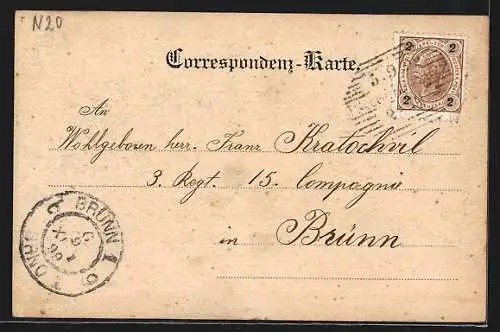 N20
Correspondenz-Karte.
2 2
2 2
An
Wohlgeboren herr. Franz Kratochvil
3. Regt. 15. Compagnie
in Brünn
BRÜNN 1
BRNO